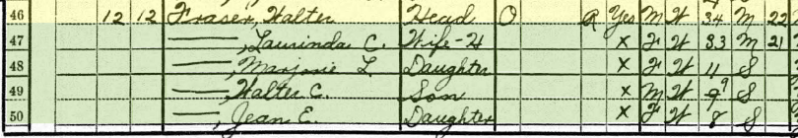 46 12 12 Fraser, Walter Head O R Yes M W 34 M 22
47 —, Laurinda C. Wife-H X F W 33 M 21
48 —, Marjorie L. Daughter X F W 11 S
49 —, Walter C. Son X M W 9 9 S
50 —, Jean E. Daughter X F W 8 S